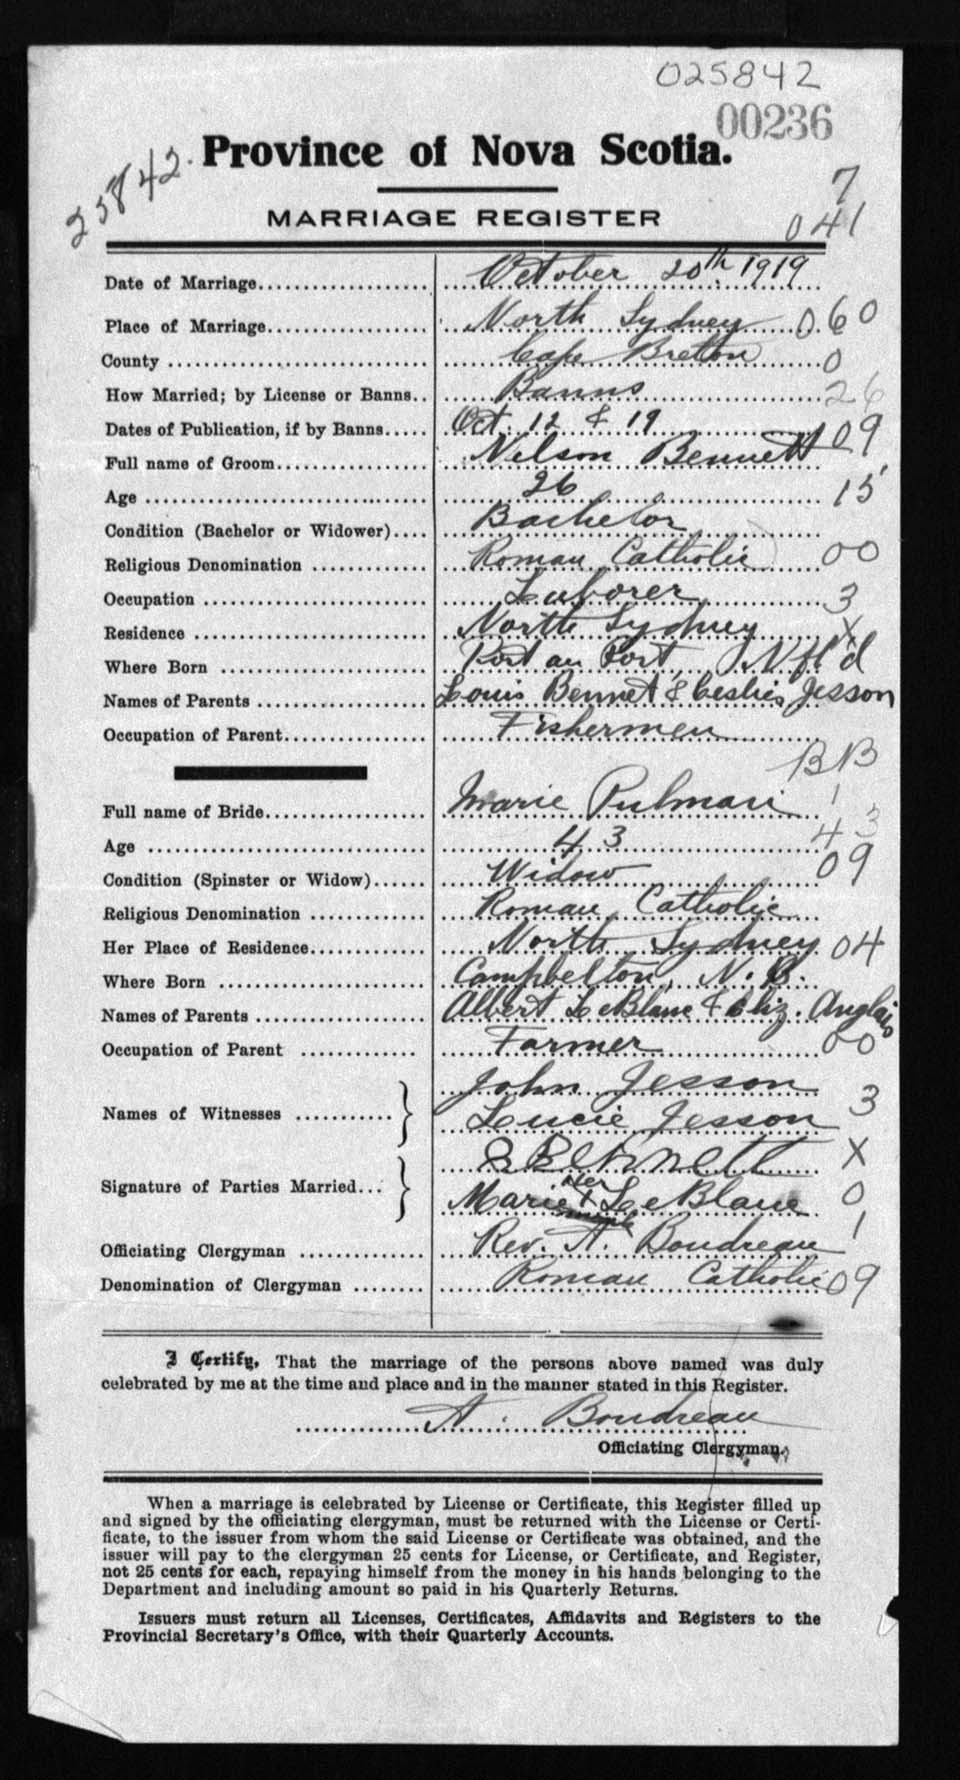 025842
00236
25842.
Province of Nova Scotia.
7
MARRIAGE REGISTER
041
Date of Marriage.................... October 20th 1919
Place of Marriage................... North Sydney 060
County .............................. Cape Breton 0
How Married; by License or Banns.. Banns 26
Dates of Publication, if by Banns..... Oct. 12 & 19 09
Full name of Groom.................. Nelson Bennett
Age ................................ 26 15
Condition (Bachelor or Widower).... Bachelor
Religious Denomination ............ Roman Catholic 00
Occupation ......................... Laborer 3
Residence .......................... North Sydney X
Where Born ........................ Port au Port, Nfl'd
Names of Parents .................. Louis Bennet & Jesson
Occupation of Parent................ Fishermen
BB
Full name of Bride.................. Marie Pulman 1
Age ................................ 43 43
Condition (Spinster or Widow)...... Widow 09
Religious Denomination ............ Roman Catholic
Her Place of Residence............. North Sydney 04
Where Born ........................ Campbelton, N. B.
Names of Parents .................. Albert LeBlanc & Eliz. Anglais
Occupation of Parent ............. Farmer 00
Names of Witnesses ........... } John Jesson 3
Lucie Jesson
Signature of Parties Married... } Bennett X
Marie her X mark LeBlanc 0
Officiating Clergyman .............. Rev. A. Boudreau 1
Denomination of Clergyman ........ Roman Catholic 09
I Certify, That the marriage of the persons above named was duly
celebrated by me at the time and place and in the manner stated in this Register.
A. Boudreau
Officiating Clergyman.
When a marriage is celebrated by License or Certificate, this Register filled up
and signed by the officiating clergyman, must be returned with the License or Certi-
ficate, to the issuer from whom the said License or Certificate was obtained, and the
issuer will pay to the clergyman 25 cents for License, or Certificate, and Register,
not 25 cents for each, repaying himself from the money in his hands belonging to the
Department and including amount so paid in his Quarterly Returns.
Issuers must return all Licenses, Certificates, Affidavits and Registers to the
Provincial Secretary's Office, with their Quarterly Accounts.